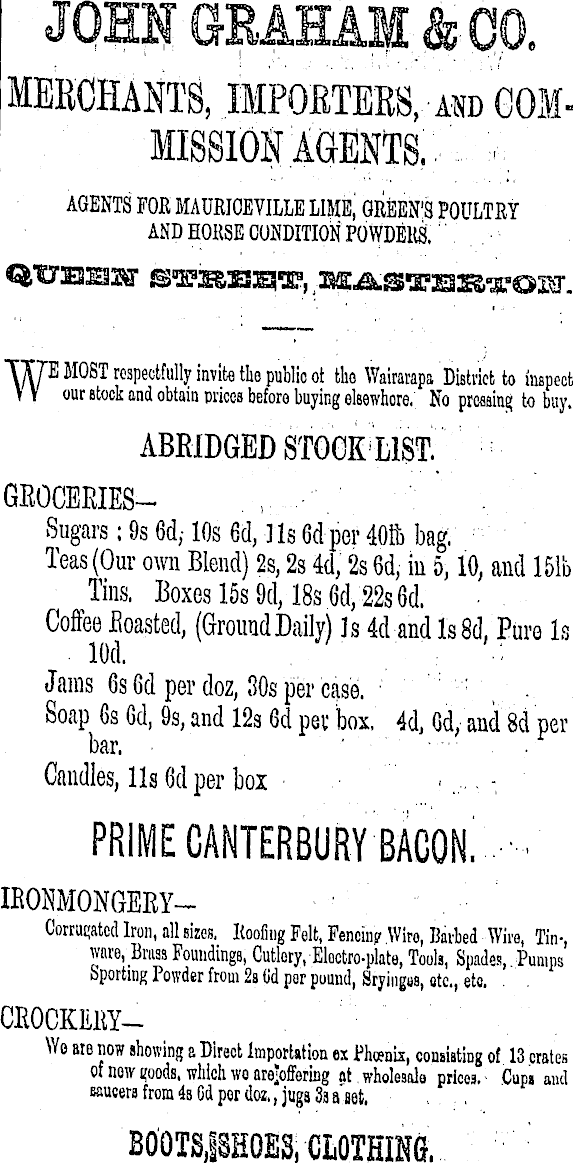 JOHN GRAHAM & CO.
MERCHANTS, IMPORTERS, AND COM-
MISSION AGENTS.
AGENTS FOR MAURICEVILLE LIME, GREEN'S POULTRY
AND HORSE CONDITION POWDERS.
QUEEN STREET, MASTERTON.
WE MOST respectfully invite the public ot the Wairarapa District to inspect
our stock and obtain prices before buying elsewhere. No pressing to buy.
ABRIDGED STOCK LIST.
GROCERIES—
Sugars : 9s 6d, 10s 6d, 11s 6d per 40lb bag.
Teas (Our own Blend) 2s, 2s 4d, 2s 6d, in 5, 10, and 15lb
Tins. Boxes 15s 9d, 18s 6d, 22s 6d.
Coffee Roasted, (Ground Daily) 1s 4d and 1s 8d, Pure 1s
10d.
Jams 6s 6d per doz, 30s per case.
Soap 6s 6d, 9s, and 12s 6d per box. 4d, 6d, and 8d per
bar.
Candles, 11s 6d per box
PRIME CANTERBURY BACON.
IRONMONGERY—
Corrugated Iron, all sizes. Roofing Felt, Fencing Wire, Barbed Wire, Tin-
ware, Brass Foundings, Cutlery, Electro-plate, Tools, Spades, Pumps
Sporting Powder from 2s 6d per pound, Sryinges, etc., etc.
CROCKERY—
We are now showing a Direct Importation ex Phœnix, consisting of 13 crates
of new goods, which we are offering at wholesale prices. Cups and
saucers from 4s 6d per doz., jugs 3s a set.
BOOTS, SHOES, CLOTHING.